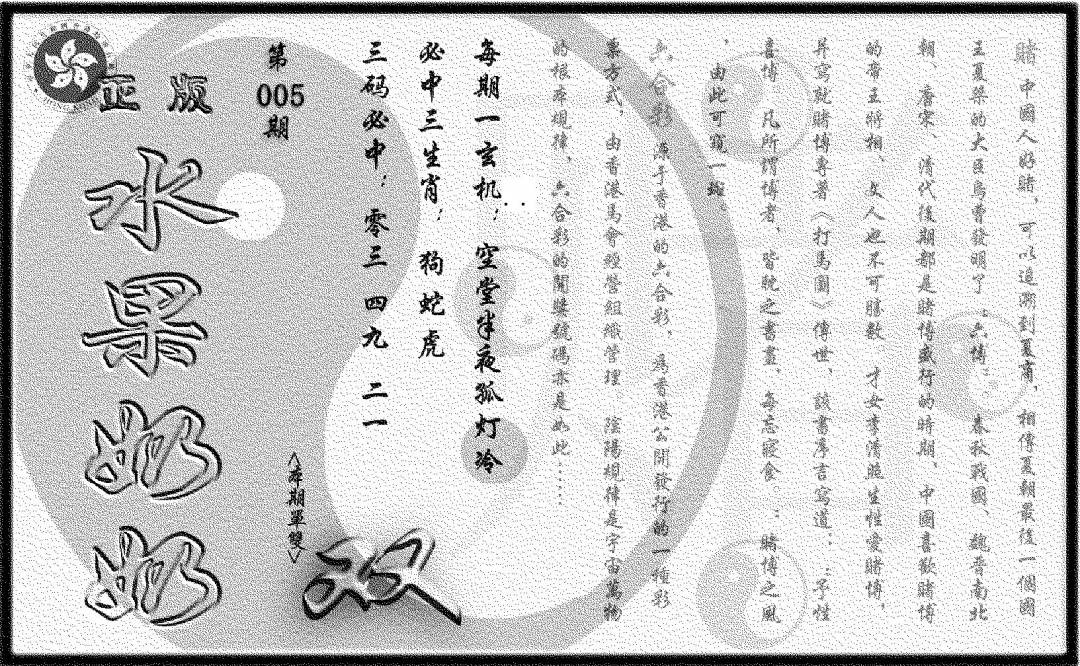 賭 中國人好賭，可以追溯到夏商，相傳夏朝最後一個國
王夏桀的大臣烏曹發明了“六博”。春秋戰國、魏晋南北
朝、唐宋、清代後期都是賭博盛行的時期、中國喜歡賭博
的帝王將相、文人也不可勝數 才女李清照生性愛賭博，
并寫就賭博專著《打馬圖》傳世、該書序言寫道：“予性
喜博 凡所謂博者、皆耽之書晝、每忘寢食”：賭博之風
，由此可窺一斑。
六合彩 源于香港的六合彩、為香港公開發行的一種彩
票方式，由香港馬會經營組織管理 陰陽規律是宇宙萬物
的根本規律，六合彩的開獎號碼亦是如此……
每期一玄机：空堂半夜孤灯冷
必中三生肖：狗蛇虎
三码必中：零三 四九 二一
第005期
<本期單雙>
双
正版
水果奶奶